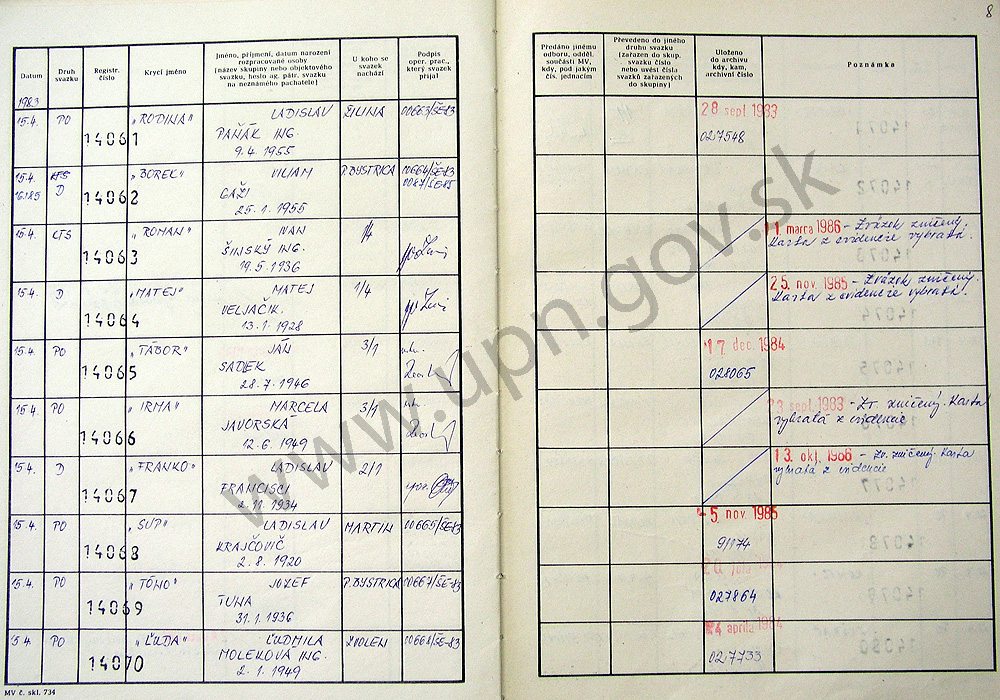 8
Datum
Druh svazku
Registr. číslo
Krycí jméno
Jméno, příjmení, datum narození rozpracované osoby
[název skupiny nebo objektového svazku, heslo ag. pátr. svazku na neznámého pachatele]
U koho se svazek nachází
Podpis oper. prac., který svazek přijal
Předáno jinému odboru, odděl. součásti MV, kdy, pod jakým čís. jednacím
Převedeno do jiného druhu svazku
[zařazen do skup. svazku číslo nebo uvési čísla svazků zařazených do skupiny]
Uloženo do archivu kdy, kam, archivní číslo
Poznámka
1983
15.4. PO 14061 „RODINA" LADISLAV ŽILINA 00663/ŠE-83 28 sept 1983
PAŇÁK ING. 027548
9.4.1955
15.4. 14062 „BOREC" VILIAM P.BYSTRICA 00664/ŠE-83
D GAŽI
25.1.1955
15.4. 14063 „ROMAN" IVAN 1 marca 1986 - Zväzek zničený.
ŠINSKÝ ING. Karta z evidencie vybratá.
19.5.1936
15.4. D 14064 „MATEJ" MATEJ 1/4 25. nov. 1985 - Zväzek zničený.
VELJAČIK. Karta z evidencie vybratá.
13.1.1928
15.4. PO 14065 „TÁBOR" JÁN 3/1 17 dec. 1984
SADEK 028065
28.7.1946
15.4. PO 14066 „IRMA" MARCELA 3/1 sept. 1983 - Zv. zničený. Karta
JAVORSKÁ vybratá z evidencie
12.6.1949
15.4. D 14067 „FRANKO" LADISLAV 2/1 13. okt. 1986 - Zv. zničený. Karta
FRANCISCI vybratá z evidencie
2.11.1934
15.4. PO 14068 „SUP" LADISLAV MARTIN 00665/ŠE-83 5. nov. 1985
KRAJČOVIČ 9/174
2.8.1920
15.4. PO 14069 „TÓNO" JOZEF P.BYSTRICA 00667/ŠE-83
TUHA 027864
31.1.1936
15.4. PO 14070 „ĽUDA" ĽUDMILA ZVOLEN 00668/ŠE-83 apríla
MOLEKOVÁ ING. 027733
2.1.1949
MV č. skl. 734
www.upn.gov.sk